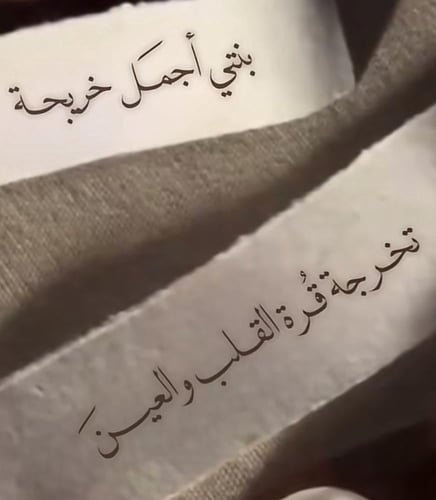 بنتي أجمَل خريجة
تخرجة قُرة القلب والعينَ